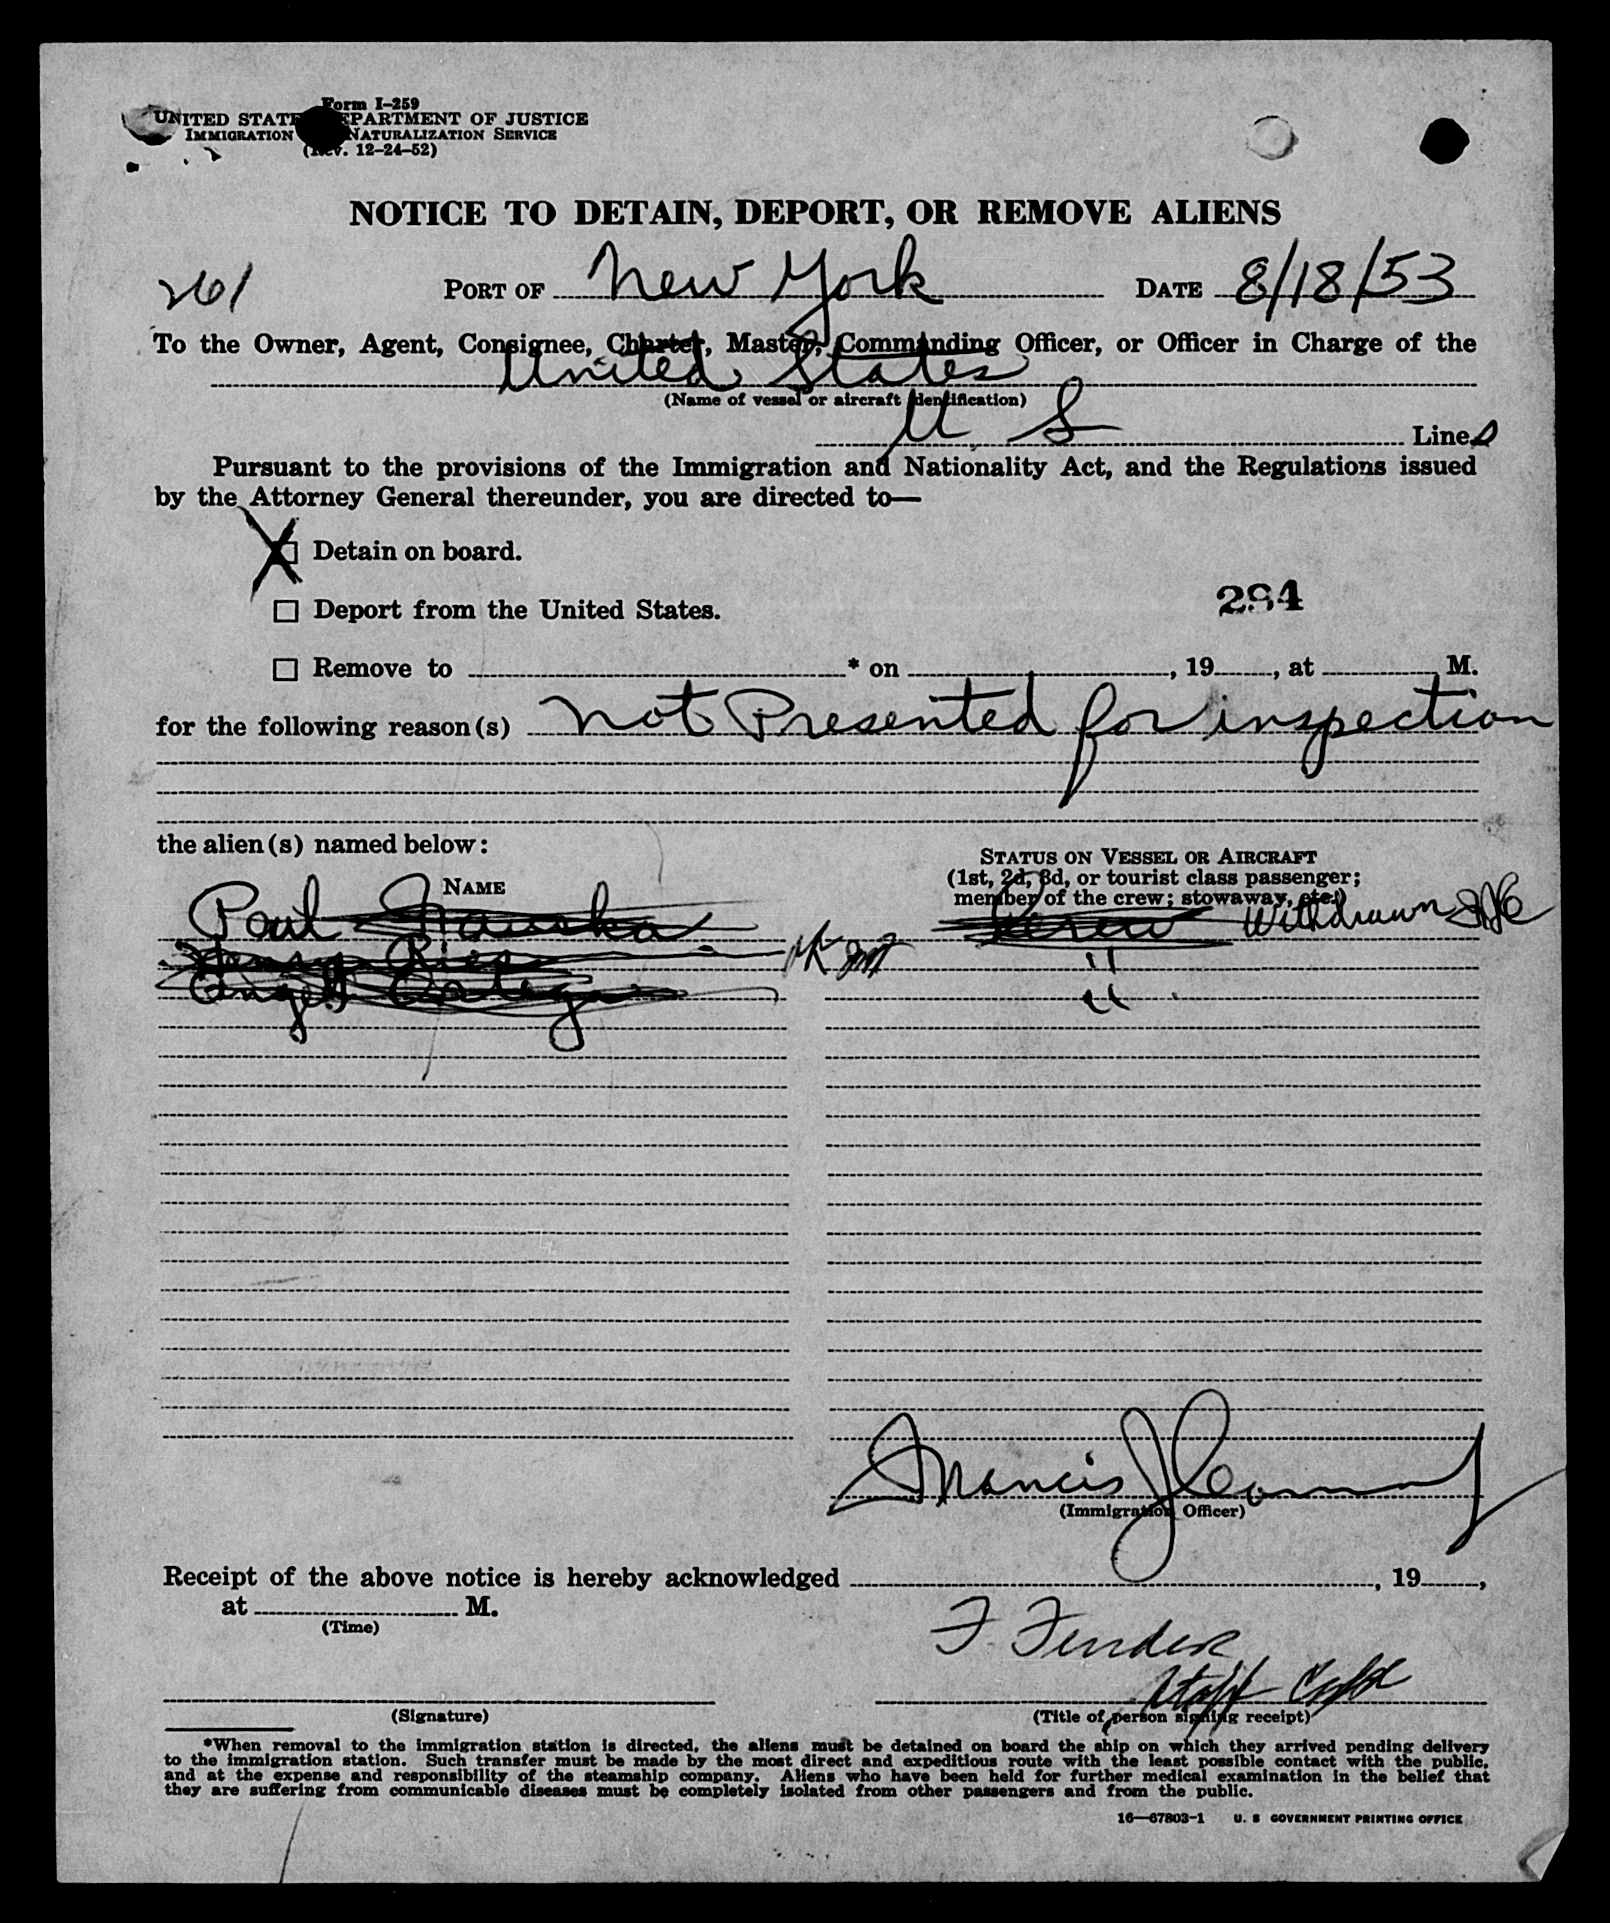 Form I-259
UNITED STATES DEPARTMENT OF JUSTICE
IMMIGRATION NATURALIZATION SERVICE
(Rev. 12-24-52)
NOTICE TO DETAIN, DEPORT, OR REMOVE ALIENS
261 PORT OF New York DATE 8/18/53
To the Owner, Agent, Consignee, Charter, Master, Commanding Officer, or Officer in Charge of the
United States
(Name of vessel or aircraft identification)
U S Lines
Pursuant to the provisions of the Immigration and Nationality Act, and the Regulations issued
by the Attorney General thereunder, you are directed to—
X Detain on board.
☐ Deport from the United States. 284
☐ Remove to * on , 19 , at M.
for the following reason(s) not Presented for inspection
the alien(s) named below:
NAME
STATUS ON VESSEL OR AIRCRAFT
(1st, 2d, 3d, or tourist class passenger;
member of the crew; stowaway, etc.)
Paul Crew Withdrawn
Henry Rios "
Angel "
Francis J
(Immigration Officer)
Receipt of the above notice is hereby acknowledged , 19 ,
at M.
(Time)
F. Fender
Staff
(Signature) (Title of person signing receipt)
*When removal to the immigration station is directed, the aliens must be detained on board the ship on which they arrived pending delivery
to the immigration station. Such transfer must be made by the most direct and expeditious route with the least possible contact with the public,
and at the expense and responsibility of the steamship company. Aliens who have been held for further medical examination in the belief that
they are suffering from communicable diseases must be completely isolated from other passengers and from the public.
16—67803-1 U. S GOVERNMENT PRINTING OFFICE